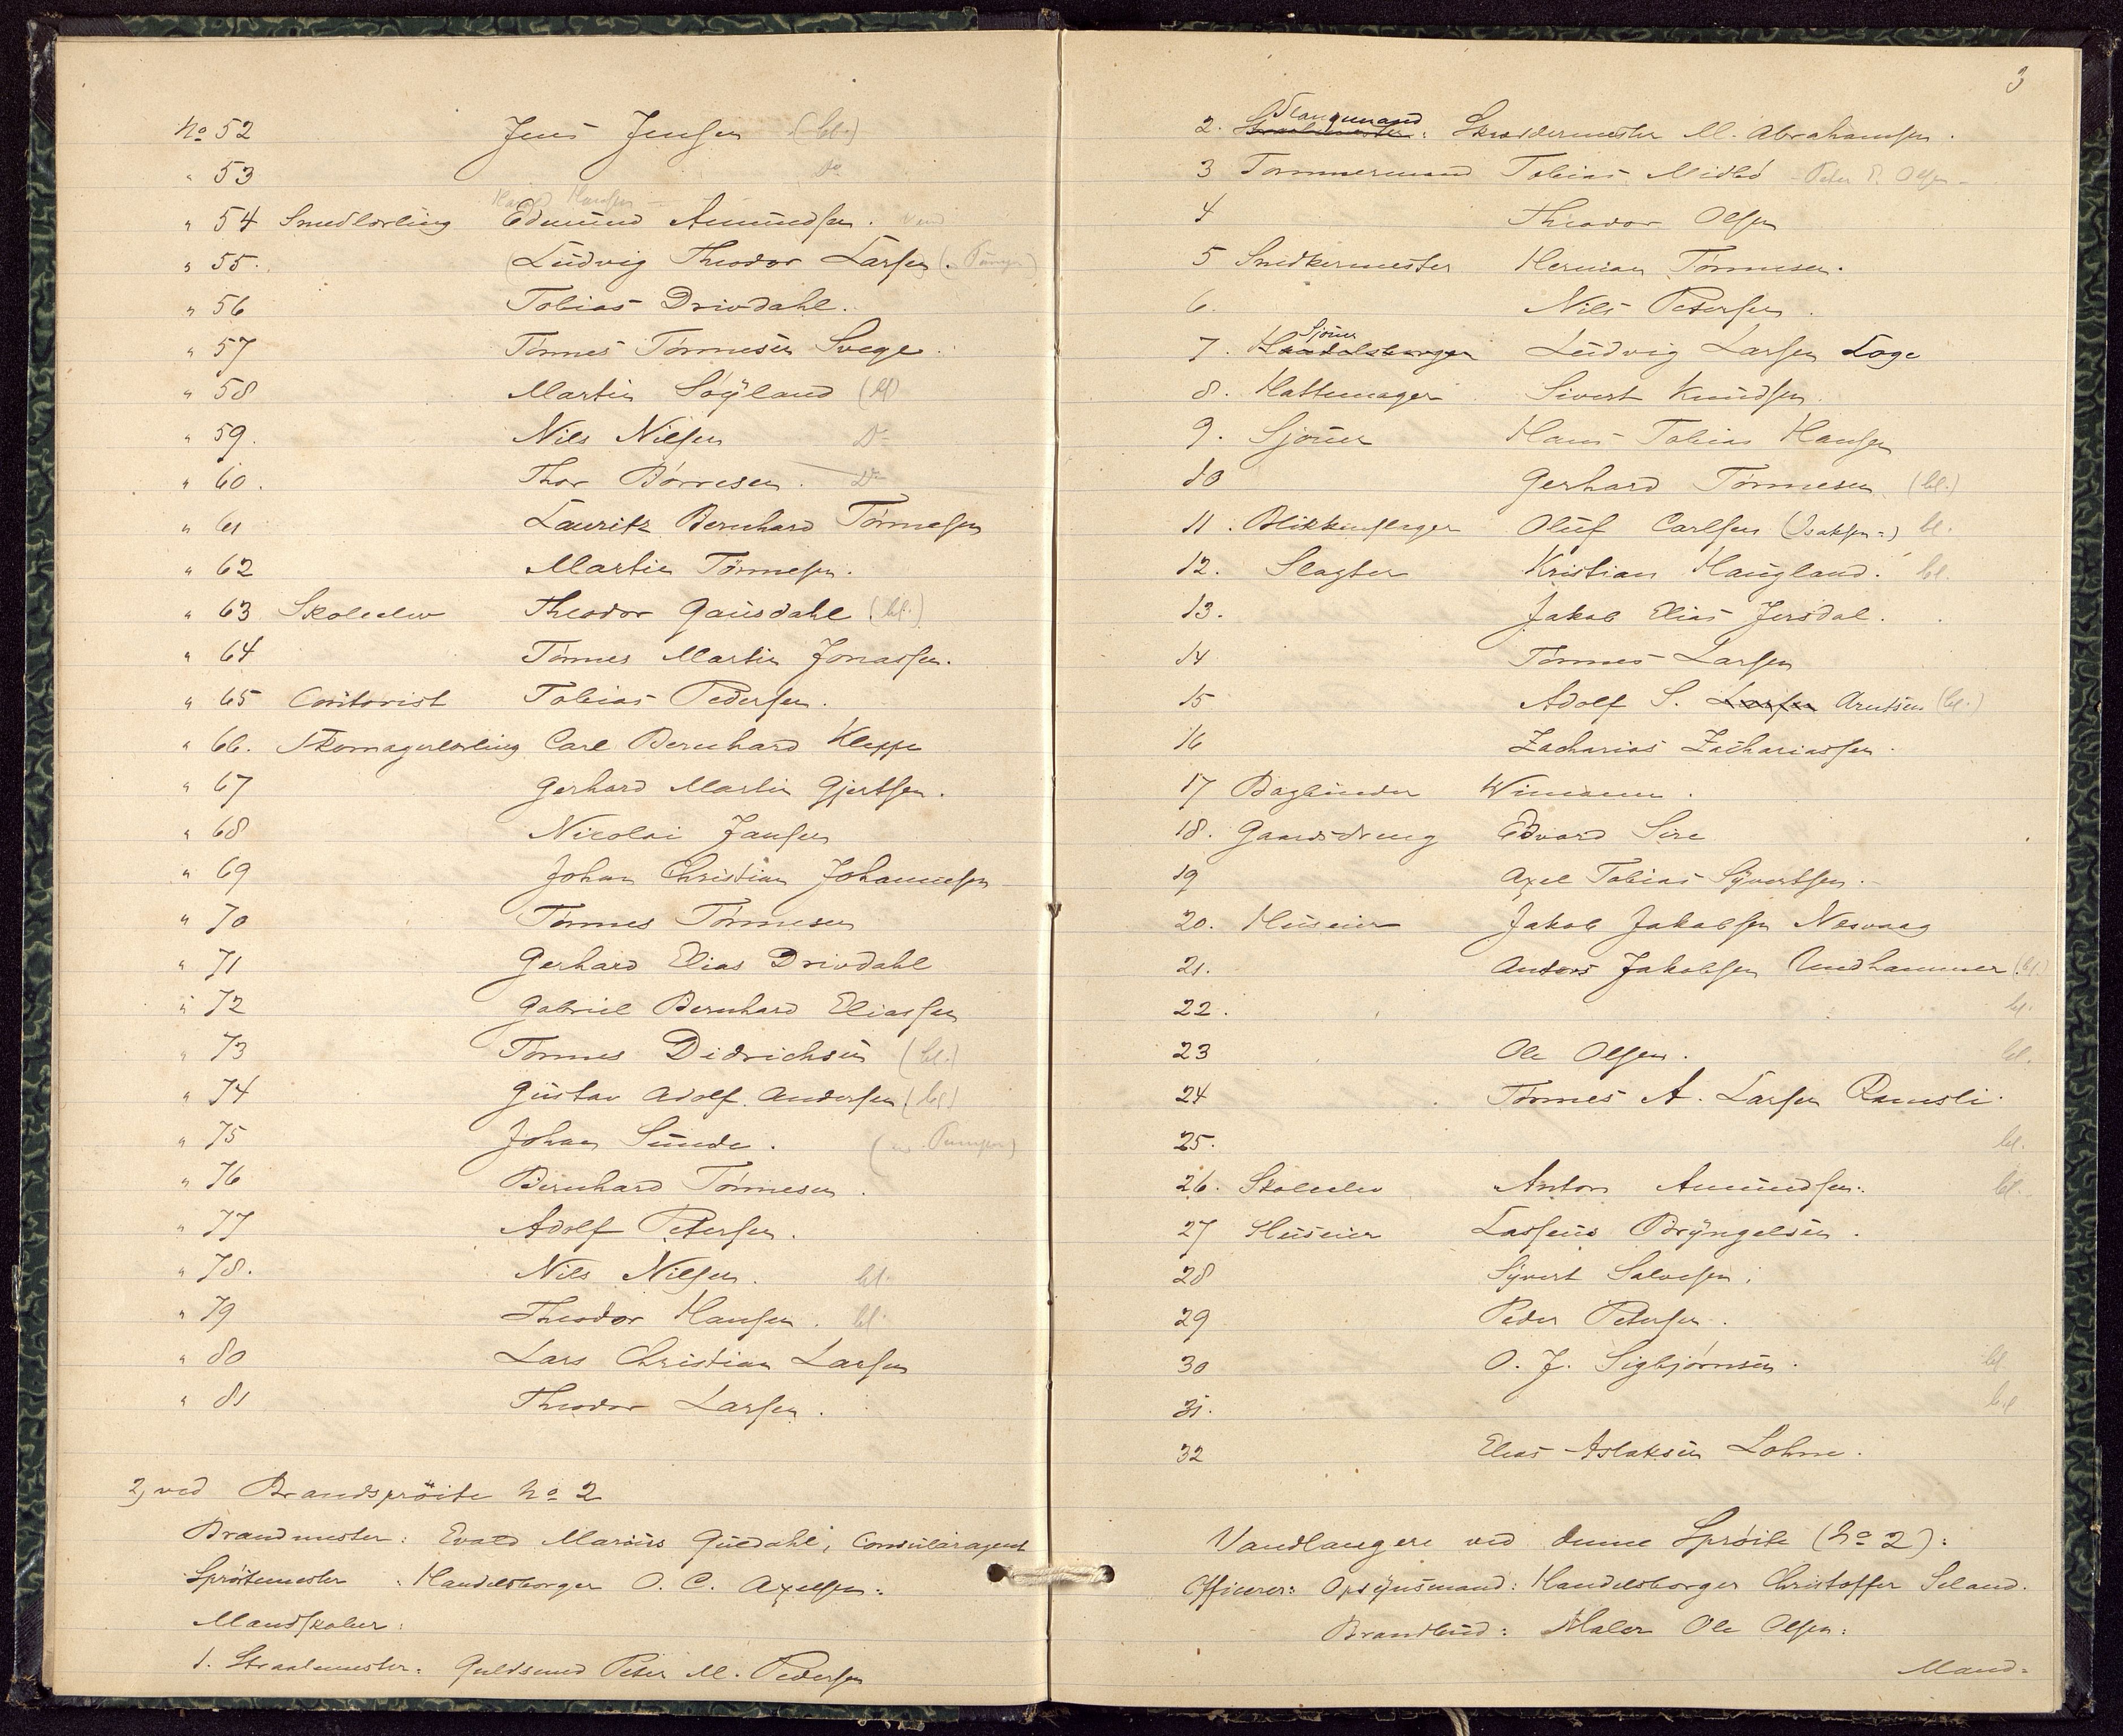 No 52 Jens Jensen (bl.)
" 53 Do
Hansen
" 54 Smedlærling Edmund Amundsen.
" 55. (Ludvig Theodor Larsen).
" 56 Tobias Drivdahl.
" 57 Tönnes Tönnesen Svege.
" 58 Martin Söÿland (bl)
" 59. Nils Nilsen Do
" 60. Thor Börresen. Do
" 61 Lauritz Bernhard Tönnesen
" 62 Martin Tönnesen.
" 63 Skoleelev Theodor Gausdahl (bl.)
" 64 Tönnes Martin Jonassen.
" 65 Contorist Tobias Pedersen.
" 66. Skomagerlærling Carl Bernhard Kleppe
" 67 Gerhard Martin Gjertsen.
" 68 Nicolai Jansen
" 69 Johan Christian Johannesen
" 70 Tönnes Tönnesen
" 71 Gerhard Elias Drivdahl
" 72 Gabriel Bernhard Eliassen
" 73 Tönnes Didrichsen (bl.)
" 74 Gustav Adolf Andersen (bl)
" 75 Johan Sunde. (ved Pumpen)
" 76 Bernhard Tönnesen.
" 77 Adolf Petersen.
" 78. Nils Nilsen. bl.
" 79 Theodor Hansen. bl.
" 80 Lars Christian Larsen
" 81 Theodor Larsen.
2, ved Brandspröite No 2
Brandmester: Evald Marius Guldahl, Consularagent
Spröitemester: Handelsborger O. C. Axelsen.
Mandskaber:
1. Straalemester: Guldsmed Peter M. Pedersen
3
Slangemand
2. Straalemester: Skræddermester M. Abrahamsen.
3 Tømmermand Tobias Midbö Peter P. Olsen
4 Theodor Olsen
5 Snedkermester Herman Tönnesen.
6. Nils Petersen.
Sjöuer
7. Handelsborger Ludvig Larsen Loge
8. Hattemager Sivert Knudsen.
9. Sjöuer Hans Tobias Hansen
10 Gerhard Tönnesen. (bl.)
11. Blikkenslager Oluf Carlsen (Isaksen) bl.
12. Slagter Kristian Haugland. bl.
13. Jakob Elias Jersdal.
14 Tönnes Larsen
15 Adolf S. Larsen Arntsen (bl.)
16 Zacharias Zachariassen.
17 Bogbinder Wimann.
18. Gaardsdreng Edvard Sire
19 Axel Tobias Syvertsen.
20. Huseier Jakob Jakobsen Nesvaag
21. Anders Jakobsen Undhammer (bl.)
22. bl.
23 Ole Olsen. bl.
24 Tönnes A. Larsen Ramsli.
25. bl.
26. Skoleelev Anton Amundsen. bl.
27 Huseier Lassens Brÿngelsen.
28 Sÿvert Salvesen.
29 Peder Petersen.
30 O. J. Sigbjörnsen. bl
31. bl
32 Elias Aslaksen Lohne.
Vandlangere ved denne Spröite (No 2):
Officerer: Opsÿnsmand: Handelsborger Christoffer Seland.
Brandbud: Maler Ole Olsen.
Mand=